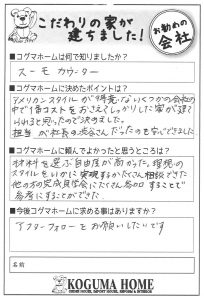 こだわりの家が
建ちました!
お勧めの
会社
■コグマホームは何で知りましたか?
スーモカウンター
■コグマホームに決めたポイントは?
アメリカンスタイルが得意ないくつかの会社の
中で1番コストをおさえてしっかりした家が建て
られると思ったので決めました。
担当が社長の渋谷さんだったのも安心できました
■コグマホームに頼んでよかったと思うところは?
材料を選ぶ自由度が高かった。理想の
スタイルをいかに実現するかたくさん相談できた
他の方の完成見学会にたくさん参加することができ
参考にすることができた
■今後コグマホームに求める事はありますか?
アフターフォローをお願いしたいです
名前
KOGUMA HOME